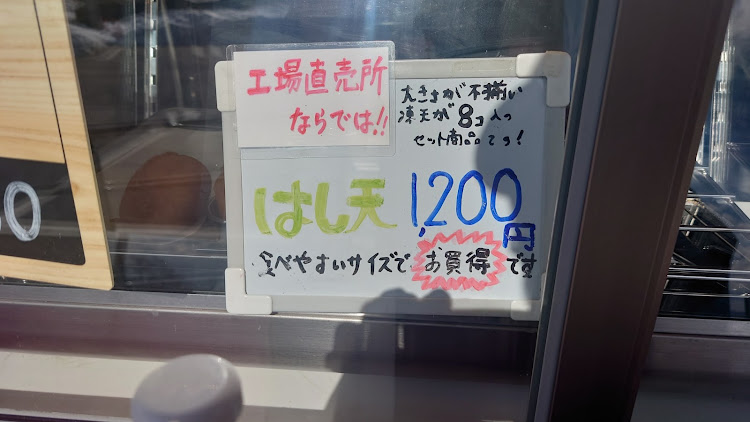 工場直売所
ならでは!!
大きさが不揃い
凍天が8コ入っ
セット商品でっ!
はし天 1,200円
食べやすいサイズで お買得 です
0